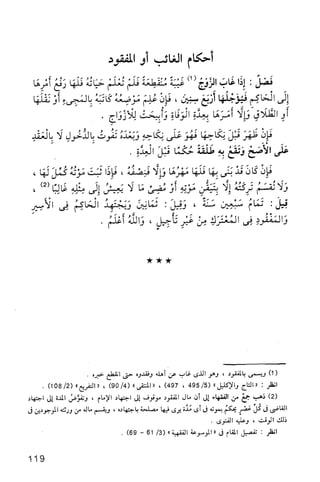 أحكام الغائب أو المفقود
فَصْل : إذَا غَابَ الزَّوْجُ (1) غَيْبَةً مُنْقَطِعَةً فَلَمْ تُعْلَمْ حَيَاتُهُ فَلَهَا رَفْعُ أَمْرِهَا
إلَى الْحَاكِمِ فَيُؤَجِّلُهَا أَرْبَعَ سِنِينَ ، فَإِنْ عُلِمَ مَوْضِعُهُ كَاتَبَهُ بِالْمَجِيءِ أَوْ نَقْلِهَا
أَوِ الطَّلَاقِ وَإِلَّا أَمَرَهَا بِعِدَّةِ الْوَفَاةِ وَأُبِيحَتْ لِلْأَزْوَاجِ .
فَإِنْ ظَهَرَ قَبْلَ نِكَاحِهَا فَهُوَ عَلَى نِكَاحِهِ وَبَعْدَهُ تَفُوتُ بِالدُّخُولِ لَا بِالْعَقْدِ
عَلَى الْأَصَحِّ وَتَقَعُ بِهِ طَلْقَةٌ حُكْمًا قَبْلَ الْعِدَّةِ .
فَإِنْ كَانَ قَدْ بَنَى بِهَا فَلَهَا مَهْرُهَا وَإِلَّا فَنِصْفُهُ ، فَإِذَا ثَبَتَ مَوْتُهُ كُمِّلَ لَهَا ،
وَلَا تُقْسَمُ تَرِكَتُهُ إلَّا بِتَيَقُّنِ مَوْتِهِ أَوْ مُضِيِّ مَا لَا يَعِيشُ إلَى مِثْلِهِ غَالِبًا (2) ،
قِيلَ : تَمَامُ سَبْعِينَ سَنَةً ، وَقِيلَ : ثَمَانِينَ وَيَجْتَهِدُ الْحَاكِمُ فِى الْأَسِيرِ
وَالْمَفْقُودِ فِى الْمُعْتَرَكِ مِنْ غَيْرِ تَأْجِيلٍ ، وَاللهُ أَعْلَمُ .
★ ★ ★
(1) ويسمى بالمفقود ، وهو الذى غاب عن أهله وفقدوه حتى انقطع خبره .
انظر : «التاج والإكليل» (5/ 495 ، 497) ، «المنتقى» (4/ 90) ، «التفريع» (2/ 108) .
(2) ذهب جمع من الفقهاء إلى أن مال المفقود موقوف إلى اجتهاد الإمام ، وتفوّض المدة إلى اجتهاد
القاضى فى كُلِّ عَصْرٍ يَحْكُمُ بموته فى أى مُدَّة يرى فيها مصلحة باجتهاده ، ويقسم ماله من ورثته الموجودين فى
ذلك الوقت ، وعليه الفتوى .
انظر : تفصيل المقام فى «الموسوعة الفقهية» (3/ 61 – 69) .
119